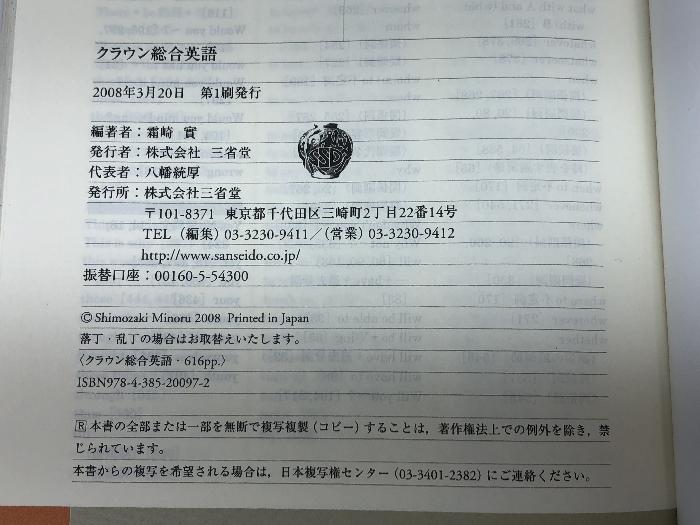 クラウン総合英語
2008年3月20日　第1刷発行
編著者：霜崎　實
発行者：株式会社　三省堂
代表者：八幡統厚
発行所：株式会社三省堂
〒101-8371　東京都千代田区三崎町2丁目22番14号
TEL（編集）03-3230-9411／（営業）03-3230-9412
http://www.sanseido.co.jp/
振替口座：00160-5-54300
© Shimozaki Minoru 2008 Printed in Japan
落丁・乱丁の場合はお取替えいたします。
〈クラウン総合英語・616pp.〉
ISBN978-4-385-20097-2
Ⓡ本書の全部または一部を無断で複写複製（コピー）することは，著作権法上での例外を除き，禁
じられています。
本書からの複写を希望される場合は，日本複写権センター（03-3401-2382）にご連絡ください。